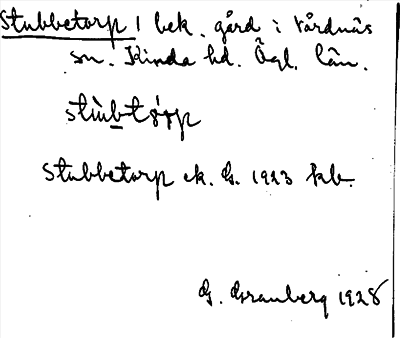 Stubbetorp 1 bek. gård i Vårdnäs
sn. Kinda hd. Ögl. län.
Stubbetorp ek. G. 1923 kb.
G. Granberg 1928